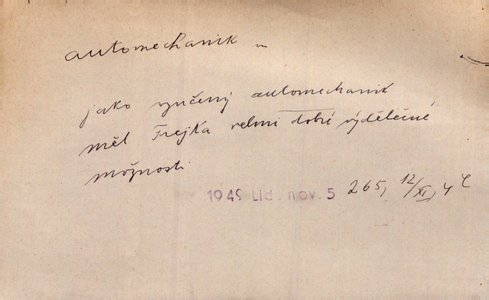 automechanik m
jako vyučený automechanik
měl Frejka velmi dobré výdělečné
možnosti
1949 Lid. nov. 5 265, 12/XI, 4 c